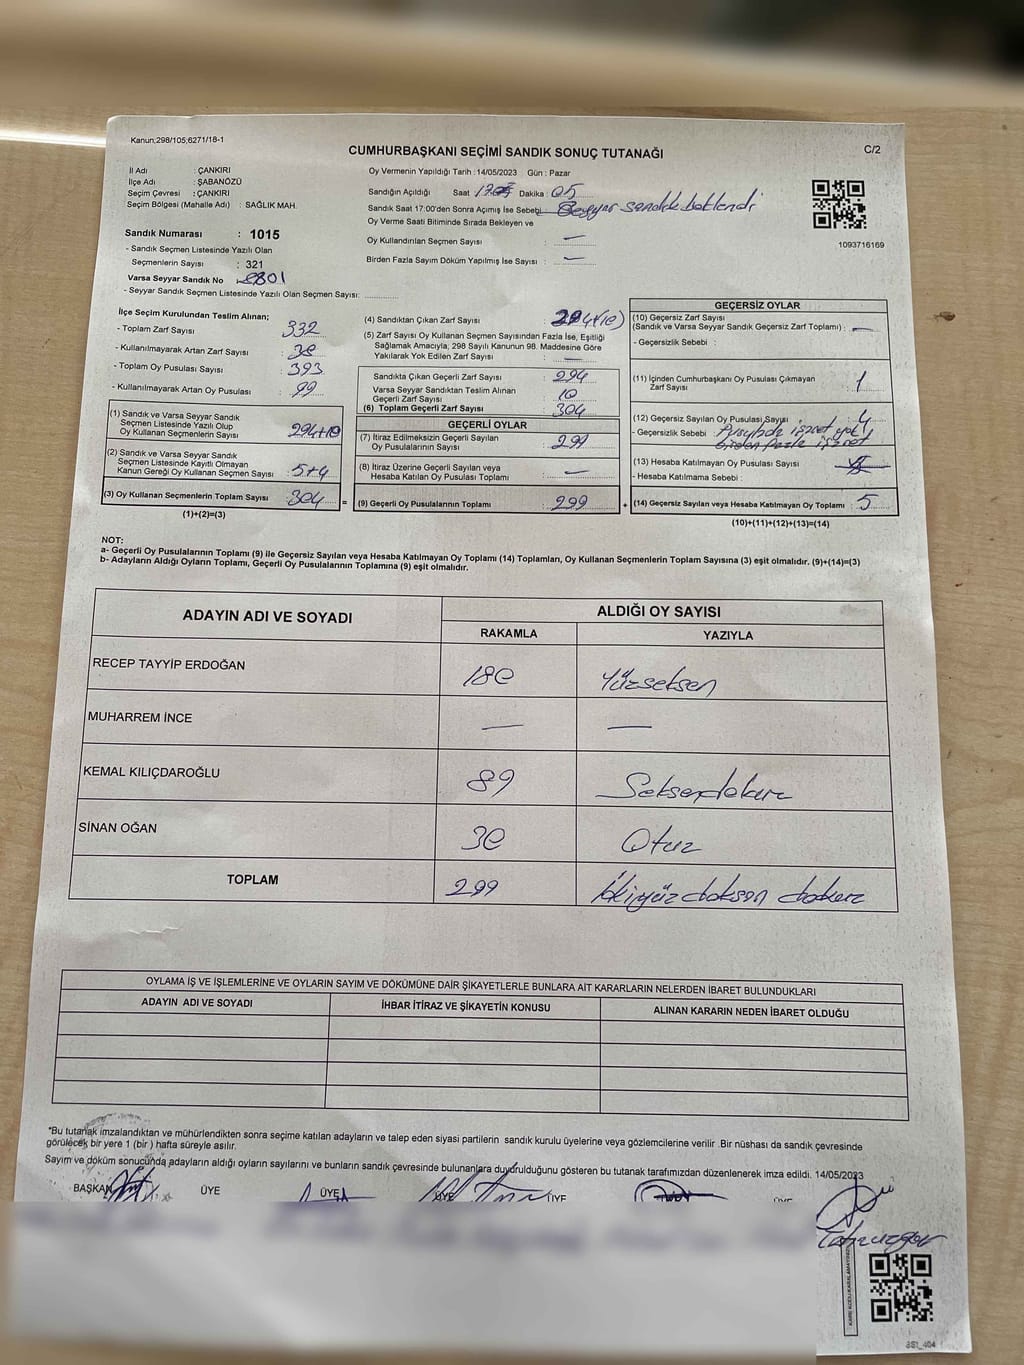 Kanun,298/105,6271/18-1
CUMHURBAŞKANI SEÇİMİ SANDIK SONUÇ TUTANAĞI
C/2
İl Adı : ÇANKIRI
İlçe Adı : ŞABANÖZÜ
Seçim Çevresi : ÇANKIRI
Seçim Bölgesi (Mahalle Adı) : SAĞLIK MAH.
Sandık Numarası : 1015
- Sandık Seçmen Listesinde Yazılı Olan
Seçmenlerin Sayısı : 321
Varsa Seyyar Sandık No
- Seyyar Sandık Seçmen Listesinde Yazılı Olan Seçmen Sayısı:
Oy Vermenin Yapıldığı Tarih : 14/05/2023 Gün : Pazar
Sandığın Açıldığı Saat Dakika 05
Sandık Saat 17:00'den Sonra Açımış İse Sebebi Seyyar sandık beklendi
Oy Verme Saati Bitiminde Sırada Bekleyen ve
Oy Kullandırılan Seçmen Sayısı : —
Birden Fazla Sayım Döküm Yapılmış İse Sayısı : —
1093716169
İlçe Seçim Kurulundan Teslim Alınan;
- Toplam Zarf Sayısı 332
- Kullanılmayarak Artan Zarf Sayısı : 38
- Toplam Oy Pusulası Sayısı : 393
- Kullanılmayarak Artan Oy Pusulası : 99
(1) Sandık ve Varsa Seyyar Sandık
Seçmen Listesinde Yazılı Olup
Oy Kullanan Seçmenlerin Sayısı : 294+10
(2) Sandık ve Varsa Seyyar Sandık
Seçmen Listesinde Kayıtlı Olmayan
Kanun Gereği Oy Kullanan Seçmen Sayısı : 5+4
(3) Oy Kullanan Seçmenlerin Toplam Sayısı : 304 =
(1)+(2)=(3)
(4) Sandıktan Çıkan Zarf Sayısı : 294+(10)
(5) Zarf Sayısı Oy Kullanan Seçmen Sayısından Fazla İse, Eşitliği
Sağlamak Amacıyla, 298 Sayılı Kanunun 98. Maddesine Göre
Yakılarak Yok Edilen Zarf Sayısı : —
Sandıkta Çıkan Geçerli Zarf Sayısı : 294
Varsa Seyyar Sandıktan Teslim Alınan
Geçerli Zarf Sayısı : 10
(6) Toplam Geçerli Zarf Sayısı : 304
GEÇERLİ OYLAR
(7) İtiraz Edilmeksizin Geçerli Sayılan
Oy Pusulalarının Sayısı : 299
(8) İtiraz Üzerine Geçerli Sayılan veya
Hesaba Katılan Oy Pusulası Toplamı : —
(9) Geçerli Oy Pusulalarının Toplamı : 299 +
GEÇERSİZ OYLAR
(10) Geçersiz Zarf Sayısı
(Sandık ve Varsa Seyyar Sandık Geçersiz Zarf Toplamı) : —
- Geçersizlik Sebebi :
(11) İçinden Cumhurbaşkanı Oy Pusulası Çıkmayan
Zarf Sayısı : 1
(12) Geçersiz Sayılan Oy Pusulası Sayısı : 4
- Geçersizlik Sebebi : işaret yok
birden fazla işaret
(13) Hesaba Katılmayan Oy Pusulası Sayısı
- Hesaba Katılmama Sebebi :
(14) Geçersiz Sayılan veya Hesaba Katılmayan Oy Toplamı : 5
(10)+(11)+(12)+(13)=(14)
NOT:
a- Geçerli Oy Pusulalarının Toplamı (9) ile Geçersiz Sayılan veya Hesaba Katılmayan Oy Toplamı (14) Toplamları, Oy Kullanan Seçmenlerin Toplam Sayısına (3) eşit olmalıdır. (9)+(14)=(3)
b- Adayların Aldığı Oyların Toplamı, Geçerli Oy Pusulalarının Toplamına (9) eşit olmalıdır.
ADAYIN ADI VE SOYADI ALDIĞI OY SAYISI
RAKAMLA YAZIYLA
RECEP TAYYİP ERDOĞAN 180 Yüzseksen
MUHARREM İNCE — —
KEMAL KILIÇDAROĞLU 89 Seksendokuz
SİNAN OĞAN 30 Otuz
TOPLAM 299 İkiyüz doksan dokuz
OYLAMA İŞ VE İŞLEMLERİNE VE OYLARIN SAYIM VE DÖKÜMÜNE DAİR ŞİKAYETLERLE BUNLARA AİT KARARLARIN NELERDEN İBARET BULUNDUKLARI
ADAYIN ADI VE SOYADI İHBAR İTİRAZ VE ŞİKAYETİN KONUSU ALINAN KARARIN NEDEN İBARET OLDUĞU
*Bu tutanak imzalandıktan ve mühürlendikten sonra seçime katılan adayların ve talep eden siyasi partilerin sandık kurulu üyelerine veya gözlemcilerine verilir .Bir nüshası da sandık çevresinde
görülecek bir yere 1 (bir ) hafta süreyle asılır.
Sayım ve döküm sonucunda adayların aldığı oyların sayılarını ve bunların sandık çevresinde bulunanlara duyurulduğunu gösteren bu tutanak tarafımızdan düzenlenerek imza edildi. 14/05/2023
BAŞKAN ÜYE ÜYE ÜYE ÜYE